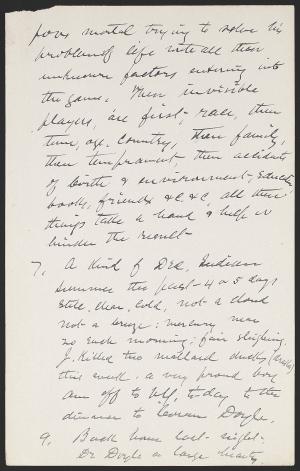 poor mortal trying to solve his
problem of life with all these
unknown factors entering into
the game. Then invisible
players, are first, race, then
time, age, country, then family,
then temprament - then accidents
of birth & environment - Education
books, friends &c &c, all these
things take a hand & help or
hinder the result -
7, A kind of Dec. Indian
summer the past 4 or 5 days
still, clear, cold, not a cloud
not a breeze: mercury near
20 each morning; fair sleighing.
J. killed two mallard ducks
this week. a very proud boy
am off to N.Y. to-day to the
dinner to Conan Doyle.
9, Back home last night -
Dr Doyle a large hearty